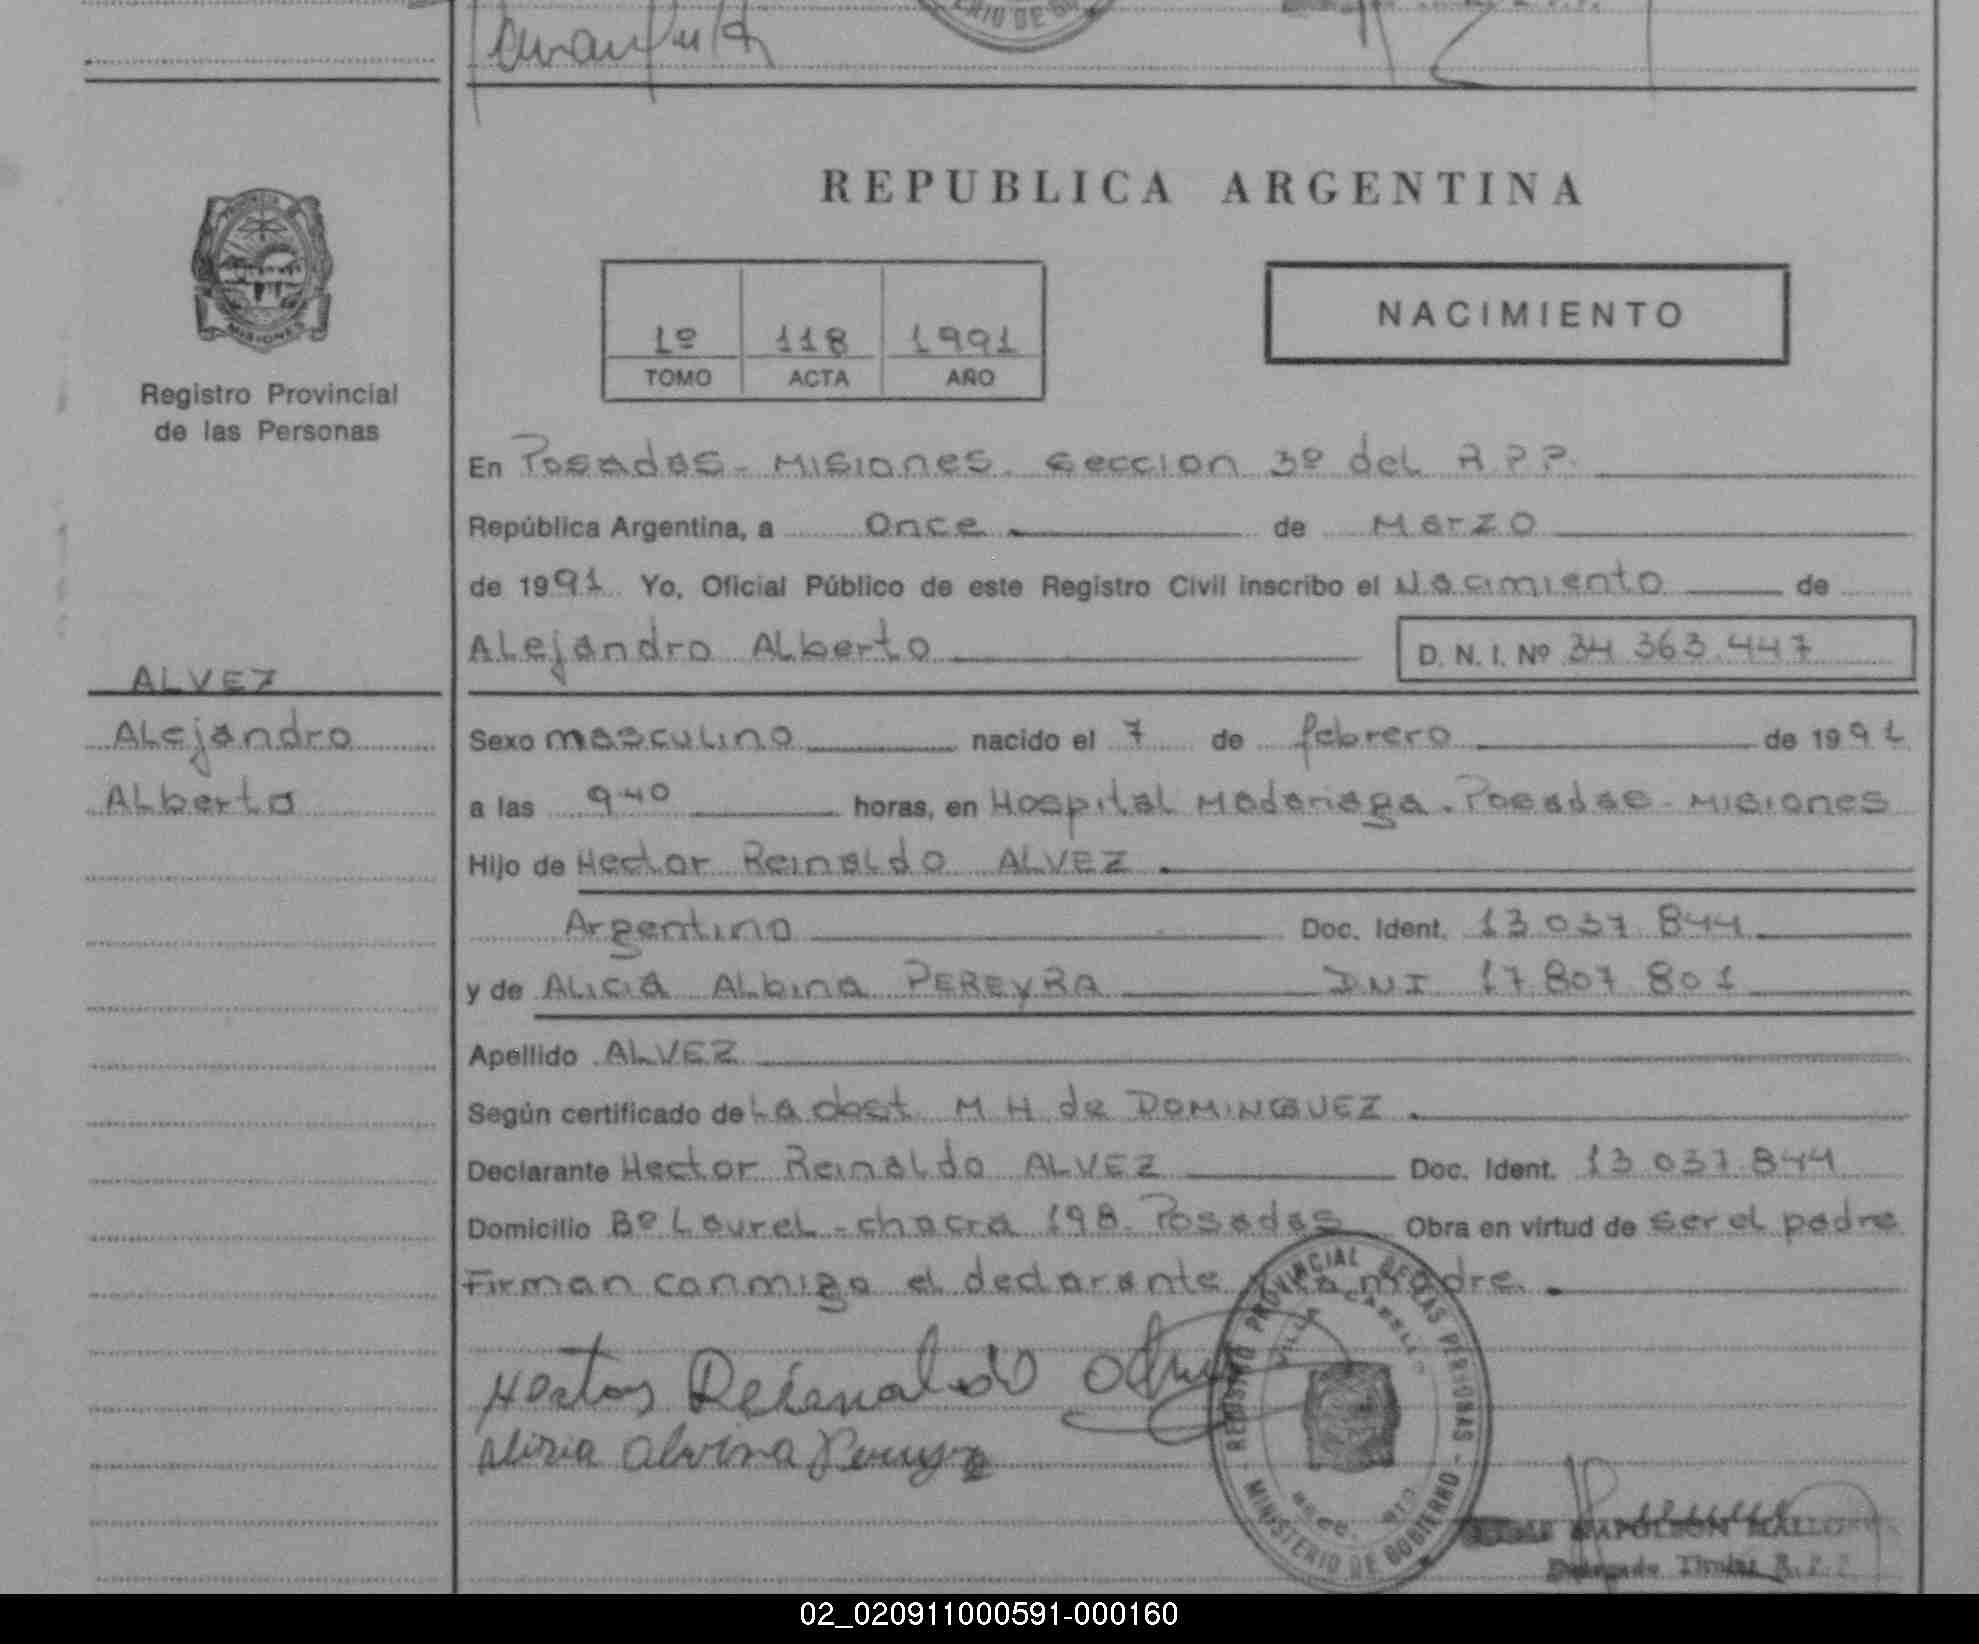 MINISTERIO DE GOBIERNO
REPUBLICA ARGENTINA
MISIONES
Registro Provincial
de las Personas
1º 118 1991
TOMO ACTA AÑO
NACIMIENTO
En Posadas - Misiones. Seccion 3º del R.P.P.
República Argentina, a Once de Marzo
de 1991 Yo, Oficial Público de este Registro Civil inscribo el Nacimiento de
Alejandro Alberto D. N. I. Nº 34 363.447
ALVEZ
Alejandro
Alberto
Sexo masculino nacido el 7 de febrero de 1991
a las 9 40 horas, en Hospital Madariaga. Posadas - Misiones
Hijo de Hector Reinaldo ALVEZ.
Argentino Doc. Ident. 13 037 844
y de Alicia Albina PEREYRA DNI 17 807 801
Apellido ALVEZ
Según certificado de La obst. M H de DOMINGUEZ.
Declarante Hector Reinaldo ALVEZ Doc. Ident. 13 037.844
Domicilio Bº Laurel - chacra 198. Posadas Obra en virtud de ser el padre
Firman conmigo el declarante y la madre.
Hector Reinaldo
REGISTRO PROVINCIAL DE LAS PERSONAS - MINISTERIO DE GOBIERNO
NAPOLEON
Delegado Titular R.P.P.
02_020911000591-000160